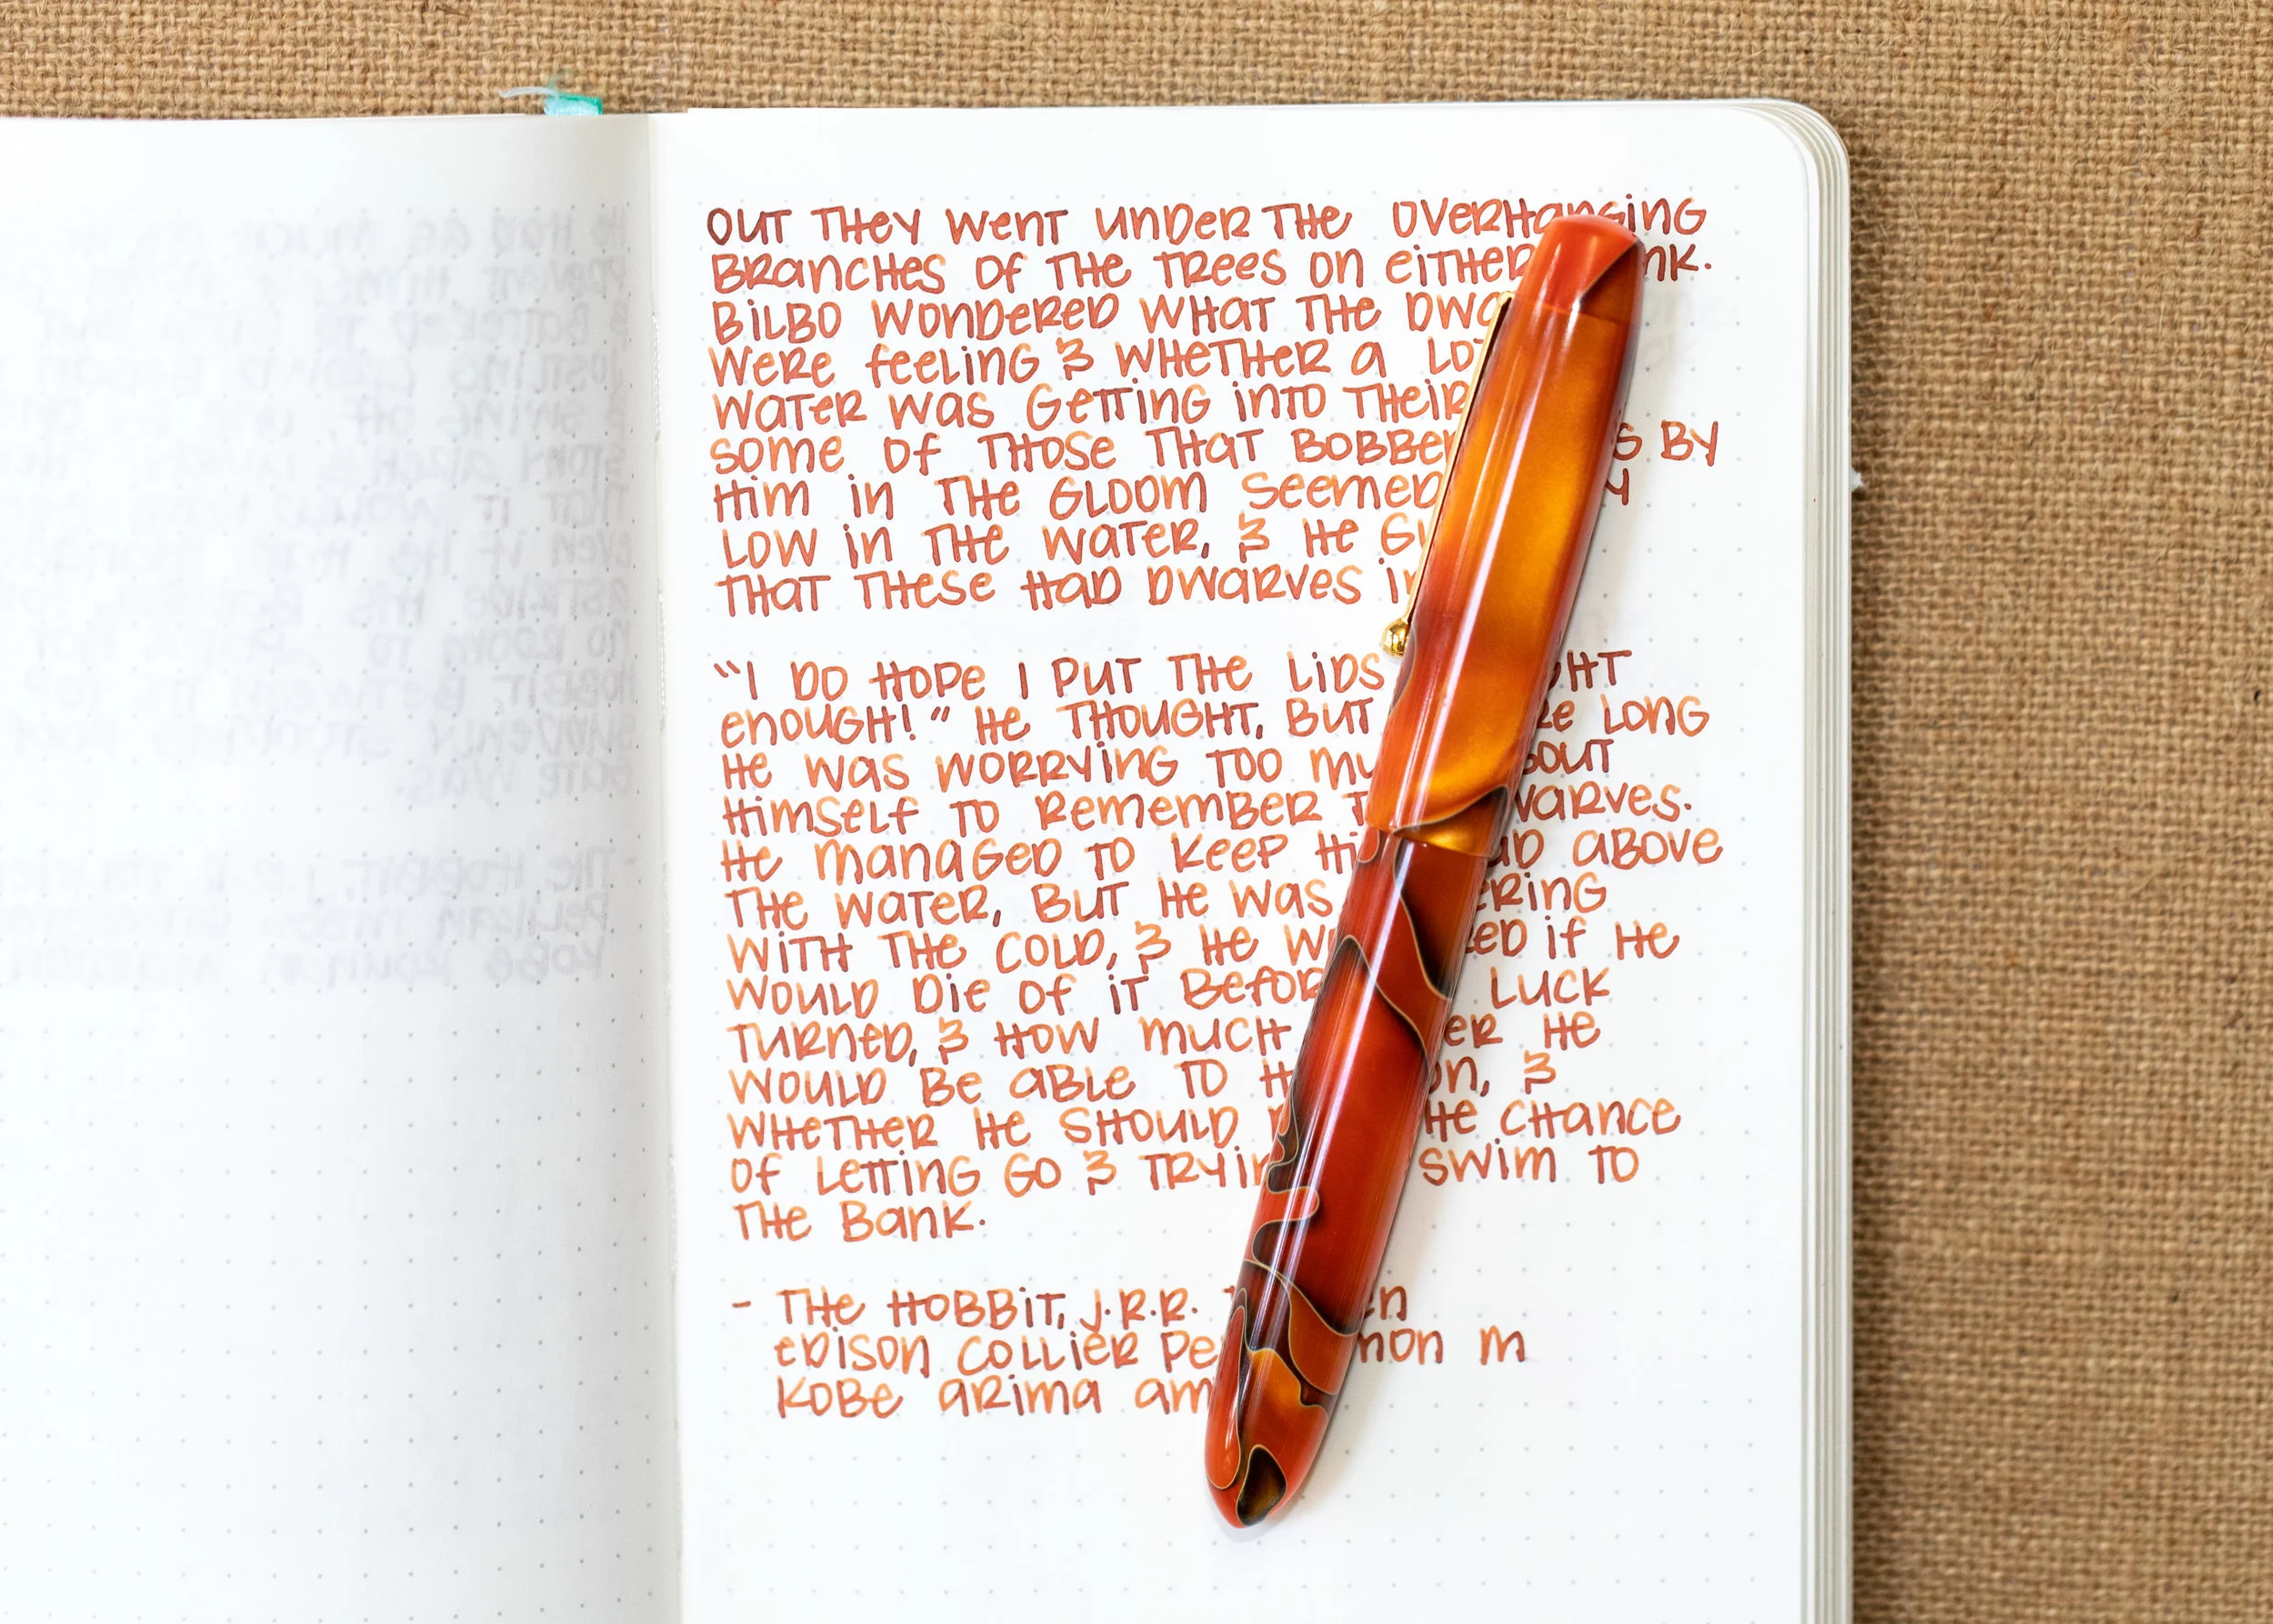 OUT THEY WENT UNDER THE OVERHANGING
BRANCHES OF THE TREES ON EITHER
BILBO WONDERED WHAT THE
WERE FEELING & WHETHER A LOT
WATER WAS GETTING INTO THEIR
SOME OF THOSE THAT BY
HIM IN THE GLOOM SEEMED
LOW IN THE WATER, & HE
THAT THESE HAD DWARVES
"I DO HOPE I PUT THE LIDS
ENOUGH!" HE THOUGHT, BUT LONG
HE WAS WORRYING TOO
HIMSELF TO REMEMBER
HE MANAGED TO KEEP ABOVE
THE WATER, BUT HE WAS
WITH THE COLD, & HE IF HE
WOULD DIE OF IT LUCK
TURNED, & HOW MUCH HE
WOULD BE ABLE TO &
WHETHER HE SHOULD CHANCE
OF LETTING GO & SWIM TO
THE BANK.
- THE HOBBIT, J.R.R.
EDISON COLLIER M
KOBE ARIMA